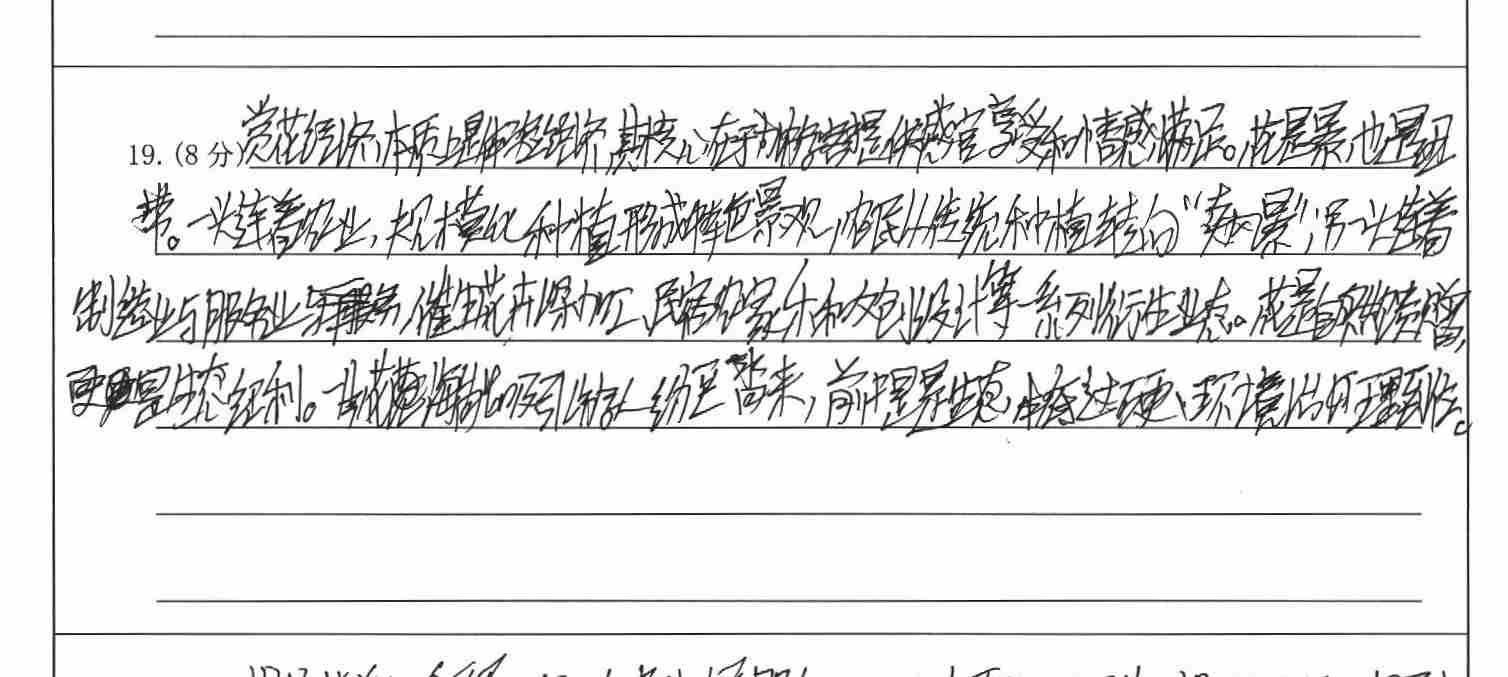 19. (8分) 赏花经济本质上是体验经济,其核心在于为游客提供感官享受和情感满足。花是景,也是纽
带。一头连着农业,规模化种植形成特色景观,农民从传统种植转向“卖风景”;另一头连着
制造业与服务业,催生花卉深加工、民宿农家乐和文创设计等一系列衍生业态。花是自然馈赠,
更是生态红利。吸引游人纷至沓来,前提是生态本有过硬、环境治理到位。